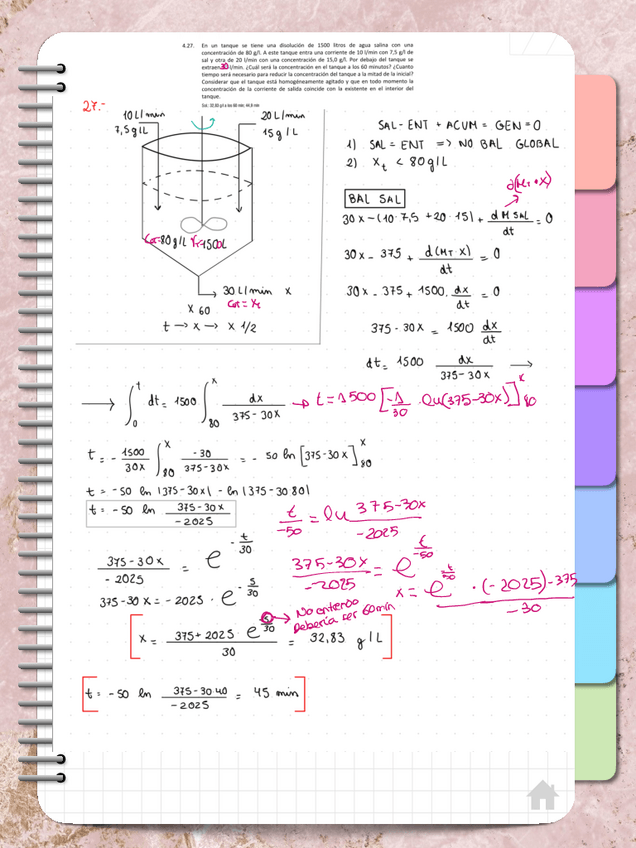 4.27. En un tanque se tiene una disolución de 1500 litros de agua salina con una
concentración de 80 g/l. A este tanque entra una corriente de 10 l/min con 7,5 g/l de
sal y otra de 20 l/min con una concentración de 15,0 g/l. Por debajo del tanque se
extraen 30 l/min. ¿Cuál será la concentración en el tanque a los 60 minutos? ¿Cuanto
tiempo será necesario para reducir la concentración del tanque a la mitad de la inicial?
Considerar que el tanque está homogéneamente agitado y que en todo momento la
concentración de la corriente de salida coincide con la existente en el interior del
tanque.
Sol.: 32,83 g/l a los 60 min; 44,6 min
27.-
10 L/min
7,5 g/L
20 L/min
15 g/L
80 g/L 1500L
30 L/min x
x 60
t → x → x 1/2
SAL - ENT + ACUM = GEN = 0
1) SAL = ENT => NO BAL GLOBAL
2) Xt < 80 g/L
d(MT·X)
BAL SAL
30x - (10·7,5 + 20·15) + d M SAL/dt = 0
30x - 375 + d(MT·x)/dt = 0
30x - 375 + 1500 · dx/dt = 0
375 - 30x = 1500 dx/dt
dt = 1500 dx/(375-30x) →
→ ∫₀ᵗ dt = 1500 ∫₈₀ˣ dx/(375-30x) → t = 1500 [-1/30 · ln(375-30x)]ˣ₈₀
t = - 1500/30x ∫₈₀ˣ -30/(375-30x) = - 50 ln [375-30x]ˣ₈₀
t = -50 ln |375-30x| - ln |375-30·80|
t = -50 ln (375-30x)/(-2025)
t/-50 = ln (375-30x)/(-2025)
(375-30x)/(-2025) = e^(-t/30)
(375-30x)/(-2025) = e^(t/-50)
375-30x = -2025 · e^(-5/30)
x = (e^(t/-50) · (-2025) - 375)/(-30)
→ No entiendo
Debería ser 60min
x = (375 + 2025 · e^(-5/30))/30 = 32,83 g/L
t = -50 ln (375-30·40)/(-2025) = 45 min